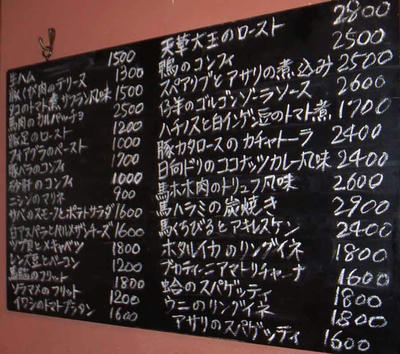 生ハム 1500
豚くび肉のテリーヌ 1300
タコのトマト煮サフラン風味 1500
馬肉のカルパッチョ 2500
豚足のロースト 1200
フォアグラのペースト 1000
豚バラのコンフィ 1700
砂肝のコンフィ 1000
ニシンのマリネ 900
サバのスモークとポテトサラダ 1600
白アスパラとパルメザンチーズ 1600
豆とキャベツ 1800
レンズ豆とベーコン 1200
馬脳のフリット 1800
ソラマメのフリット 1200
イワシのトマトグラタン 1600
天草大王のロースト 2800
鴨のコンフィ 2500
スペアリブとアサリの煮込み 2500
仔羊のゴルゴンゾーラソース 2600
ハチノスと白インゲン豆のトマト煮 1700
豚カタロースのカチャトーラ 2400
日向ドリのココナッツカレー風味 2400
馬ホホ肉のトリュフ風味 2600
馬ハラミの炭焼き 2900
馬くちびるとアキレスケン 2400
ホタルイカのリングイネ 1800
ブカティーニアマトリチャーナ 1600
蛤のスパゲッティ 1800
ウニのリングイネ 1800
アサリのスパゲッティ 1600